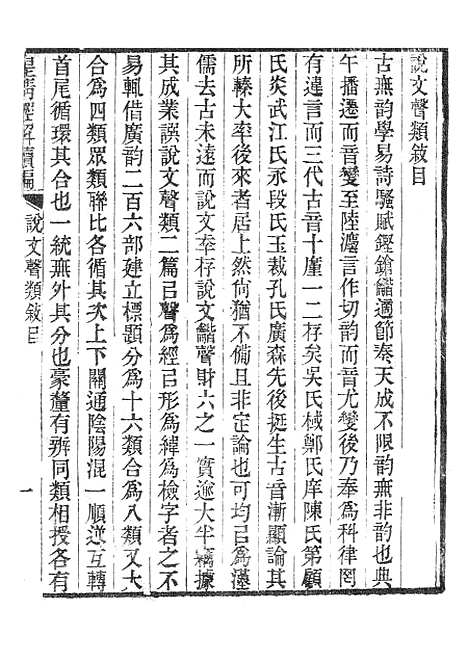 說文聲類敘目
古無韵學易詩騷賦鏗鎗龤適節奏天成不限韵無非韵也典
午播遷而音變至陸瀍言作切韵而音尤變後乃奉爲科律罔
有違言而三代古音十廑一二存矣吳氏棫鄭氏庠陳氏第顧
氏炎武江氏永段氏玉裁孔氏廣森先後挺生古音漸顯論其
所轃大率後者居上然尙猶不備且非定論也可均㠯爲漢
儒去古未遠而說文奉存說文龤聲財六之一實逾大半竊據
其成業譔說文聲類二篇㠯聲爲經㠯形爲緯爲檢字者之不
易輒借廣韵二百六部建立標題分爲十六類合爲八類又大
合爲四類眾類聯比各循其次上下關通陰陽混一順逆互轉
首尾循環其合也一統無外其分也豪釐有辨同類相授各有
皇淸經解續編
說文聲類敘目
一